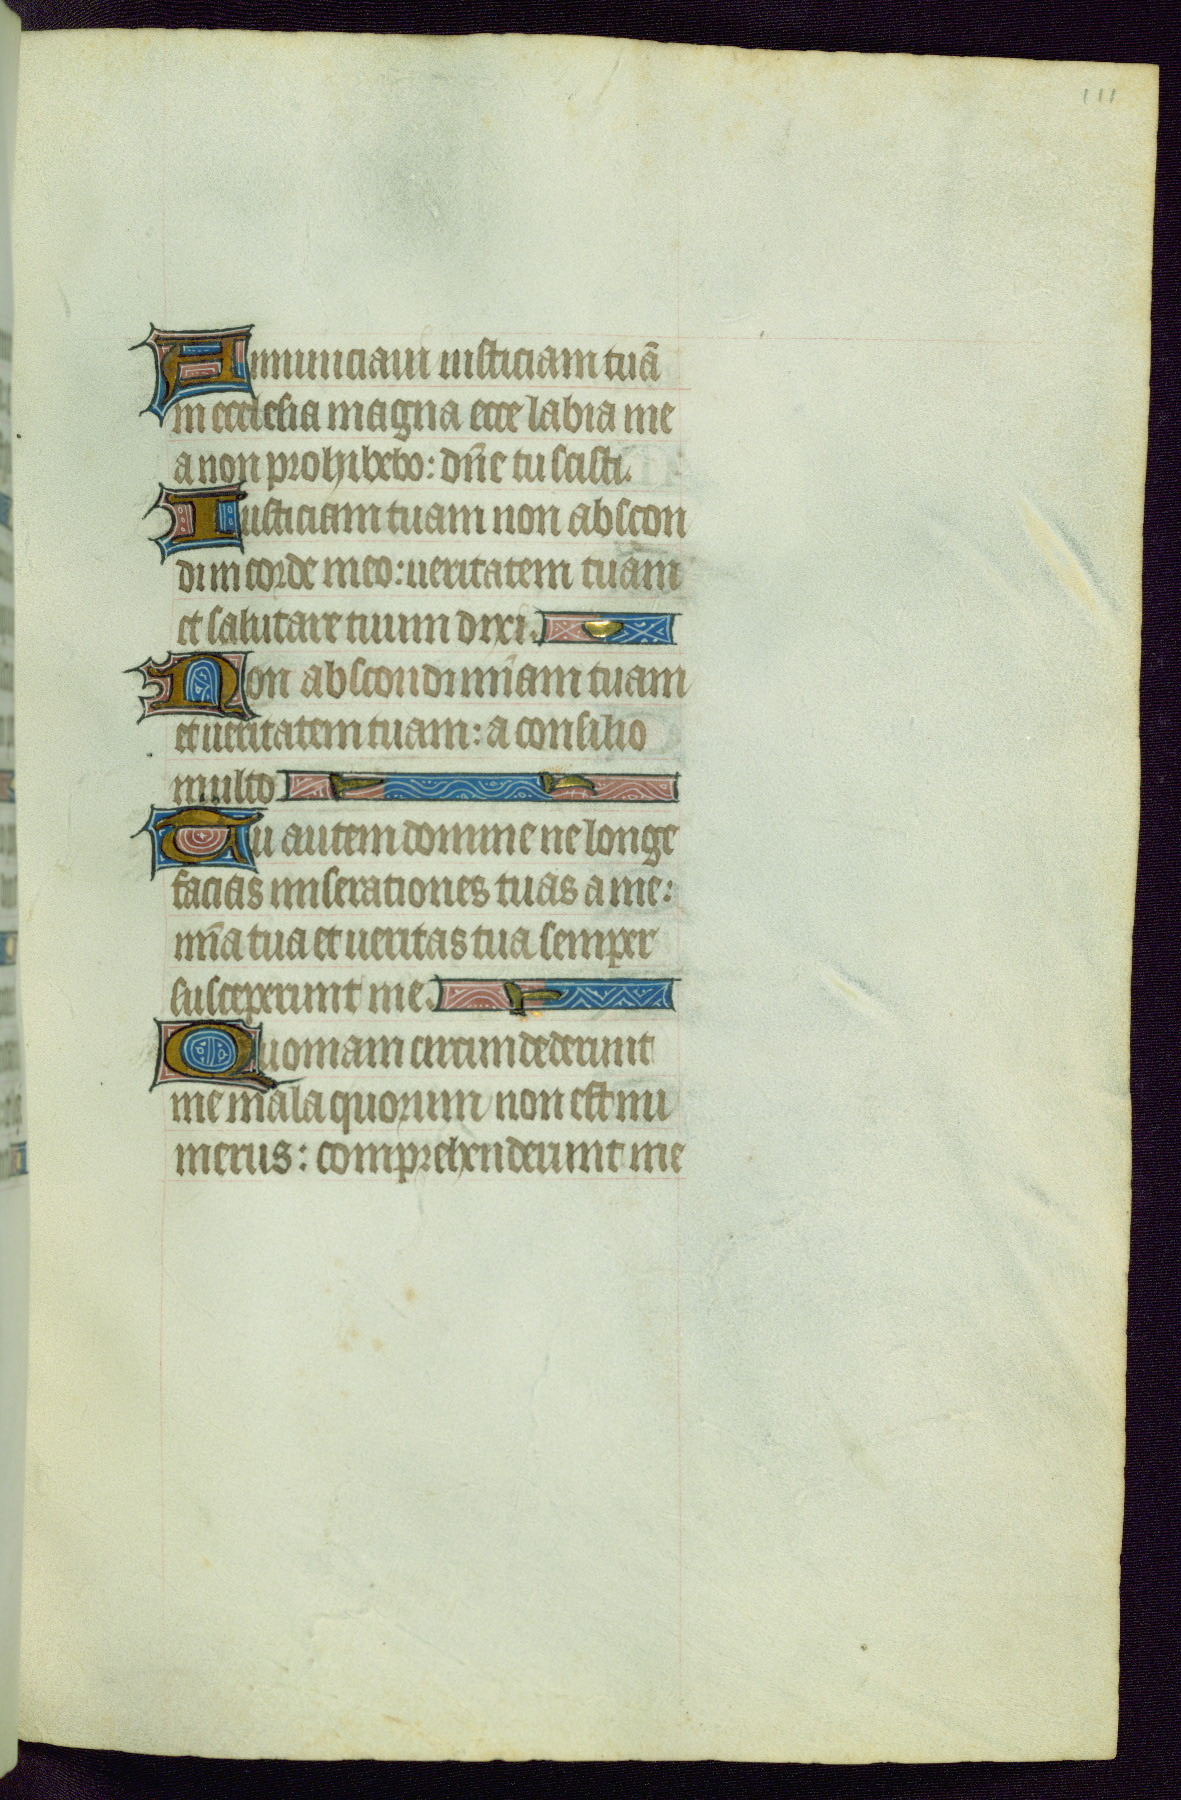 111
Annunciaui iusticiam tuā
in ecclesia magna ecce labia me
a non prohibebo: dn̄e tu scisti.
Iusticiam tuam non abscon
di in corde meo: ueritatem tuam
et salutare tuum dixi.
Non abscondi mīam tuam
et ueritatem tuam: a consilio
multo
Tu autem domine ne longe
facias miserationes tuas a me:
mīa tua et ueritas tua semper
susceperunt me.
Quoniam circumdederunt
me mala quorum non est nu
merus: comprehenderunt me